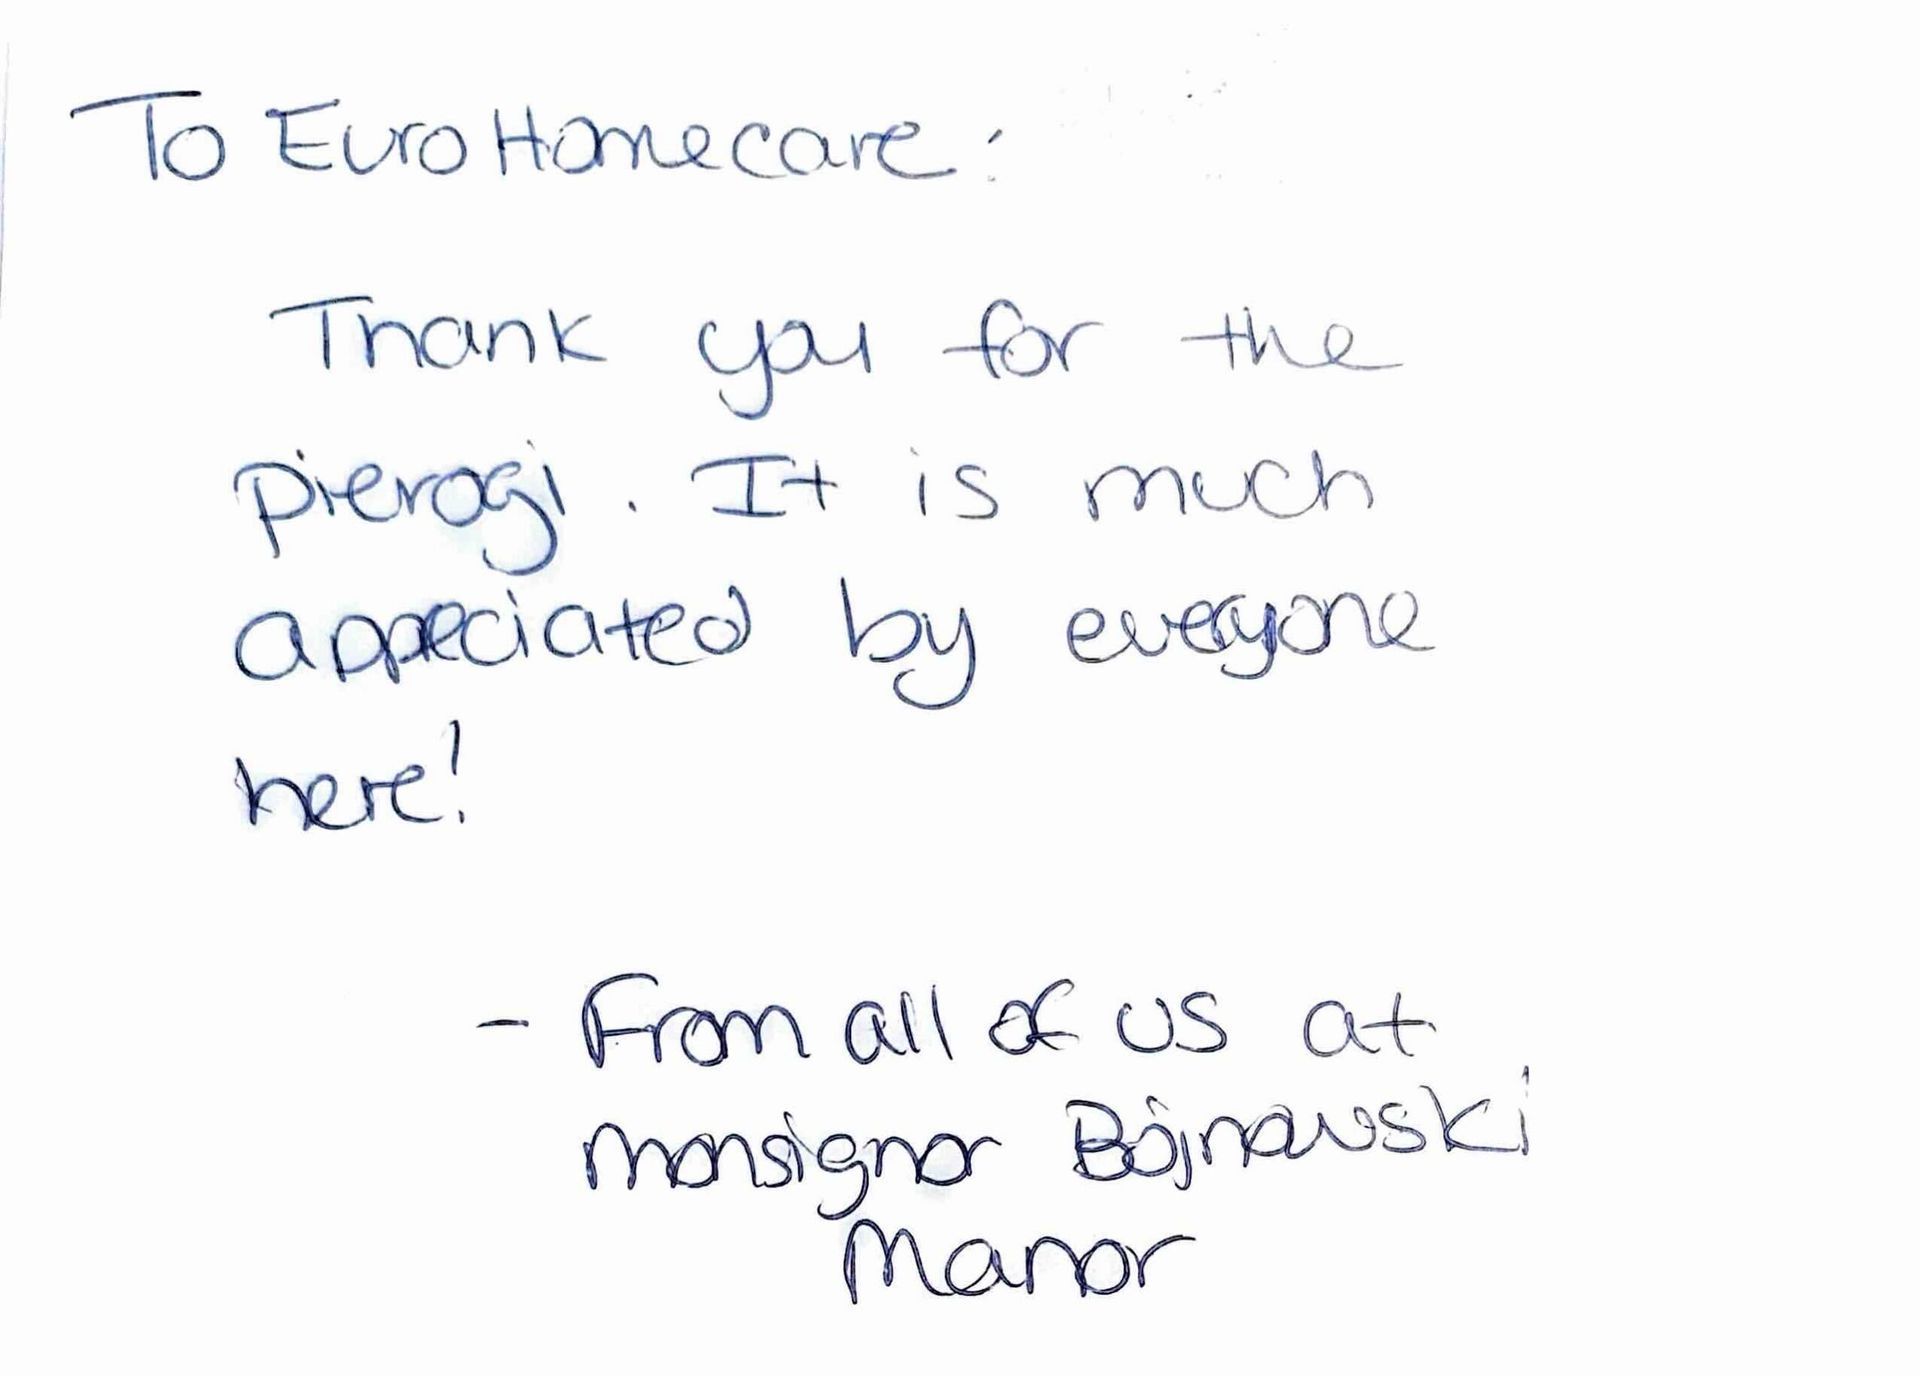 To Euro Homecare:
Thank you for the
pierogi. It is much
appreciated by everyone
here!
- From all of us at
monsignor Bojnowski
Manor